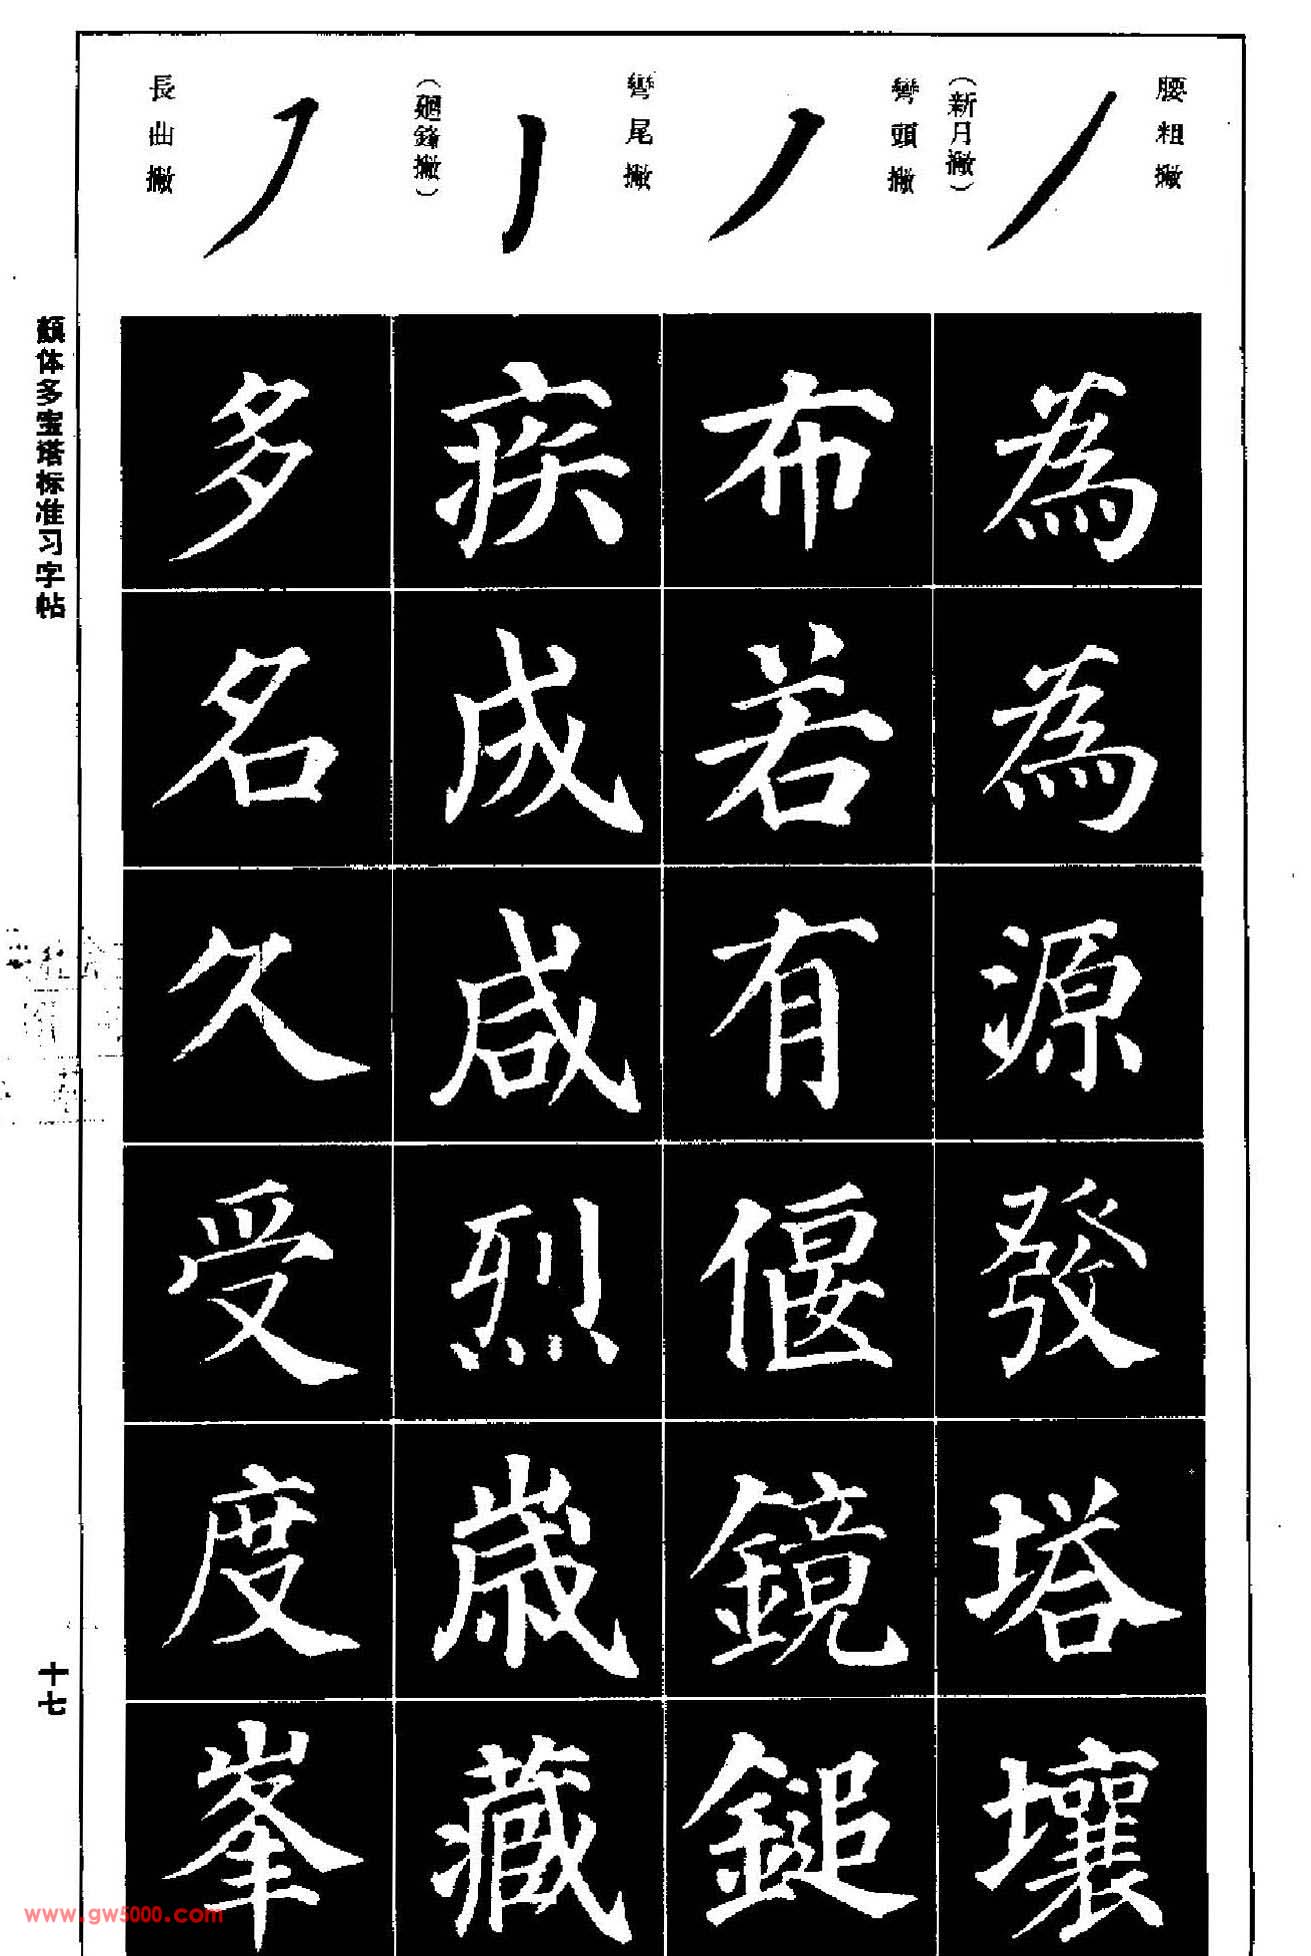 腰粗撇
（新月撇）
彎頭撇
彎尾撇
（廻鋒撇）
長曲撇
為為源發塔壤
布若有偃鏡鎚
疾成咸烈歲藏
多名久受度峯
顏体多宝塔标准习字帖
十七
www.gw5000.com